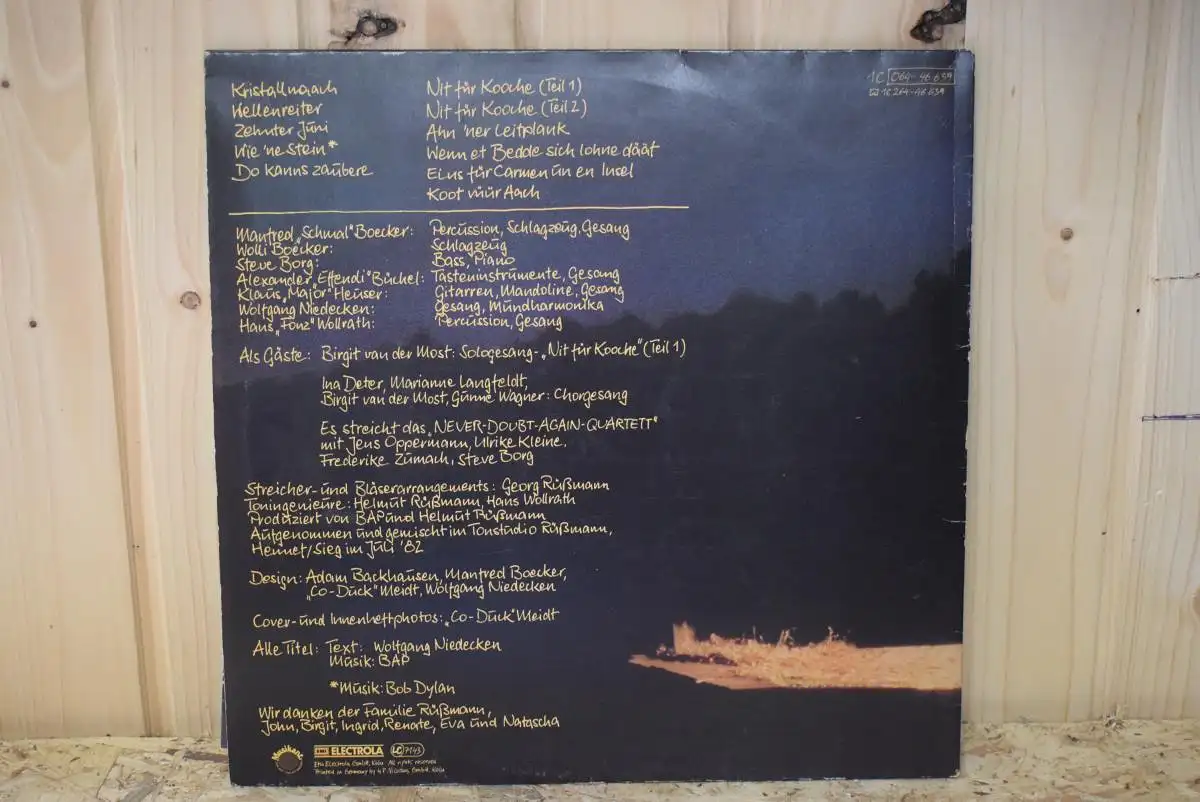 Kristallnaach
Hellenreiter
Zehnter Juni
Wie 'ne Stein*
Do kanns zaubere
Nit für Kooche (Teil 1)
Nit für Kooche (Teil 2)
Ahn 'ner Leitplank
Wenn et Bedde sich lohne däät
Eins für Carmen un en Insel
Koot vüür Aach
1C 064-46 659
1C 264-46 659
Manfred „Schmal" Boecker: Percussion, Schlagzeug, Gesang
Wolli Boecker: Schlagzeug
Steve Borg: Bass, Piano
Alexander „Effendi" Büchel: Tasteninstrumente, Gesang
Klaus „Major" Heuser: Gitarren, Mandoline, Gesang
Wolfgang Niedecken: Gesang, Mundharmonika
Hans „Fonz" Wollrath: Percussion, Gesang
Als Gäste: Birgit van der Most: Sologesang-„Nit für Kooche" (Teil 1)
Ina Deter, Marianne Langfeldt,
Birgit van der Most, Gunne Wagner: Chorgesang
Es streicht das „NEVER-DOUBT-AGAIN-QUARTETT"
mit Jens Oppermann, Ulrike Kleine,
Frederike Zumach, Steve Borg
Streicher- und Bläserarrangements: Georg Rüßmann
Toningenieure: Helmut Rüßmann, Hans Wollrath
Produziert von BAP und Helmut Rüßmann
Aufgenommen und gemischt im Tonstudio Rüßmann,
Hennef/Sieg im Juli '82
Design: Adam Backhausen, Manfred Boecker,
„Co-Duck" Meidt, Wolfgang Niedecken
Cover- und Innenheftphotos: „Co-Duck" Meidt
Alle Titel: Text: Wolfgang Niedecken
Musik: BAP
*Musik: Bob Dylan
Wir danken der Familie Rüßmann,
John, Birgit, Ingrid, Renate, Eva und Natascha
Musikant
EMI ELECTROLA LC 7143
EMI Electrola GmbH, Köln All rights reserved
Printed in Germany by